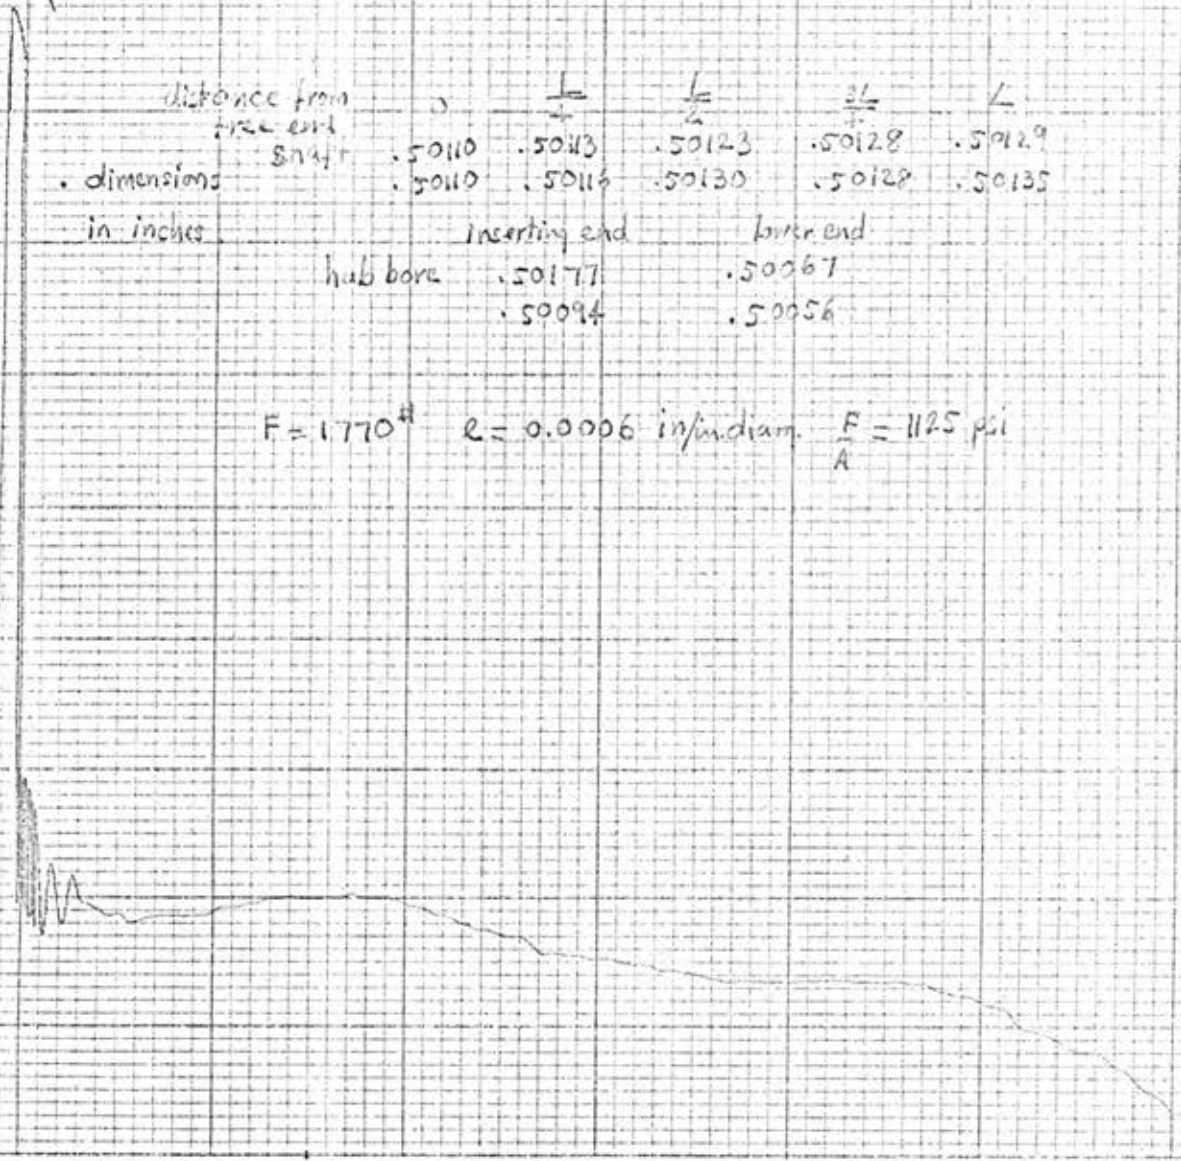 distance from 0 L/4 L/2 3L/4 L
free end
shaft .50110 .50113 .50123 .50128 .50129
. dimensions .50110 .50116 .50130 .50128 .50135
in inches inserting end lower end
hub bore .50177 .50067
.50094 .50056
F = 1770# e = 0.0006 in/in.diam. F/A = 1125 psi